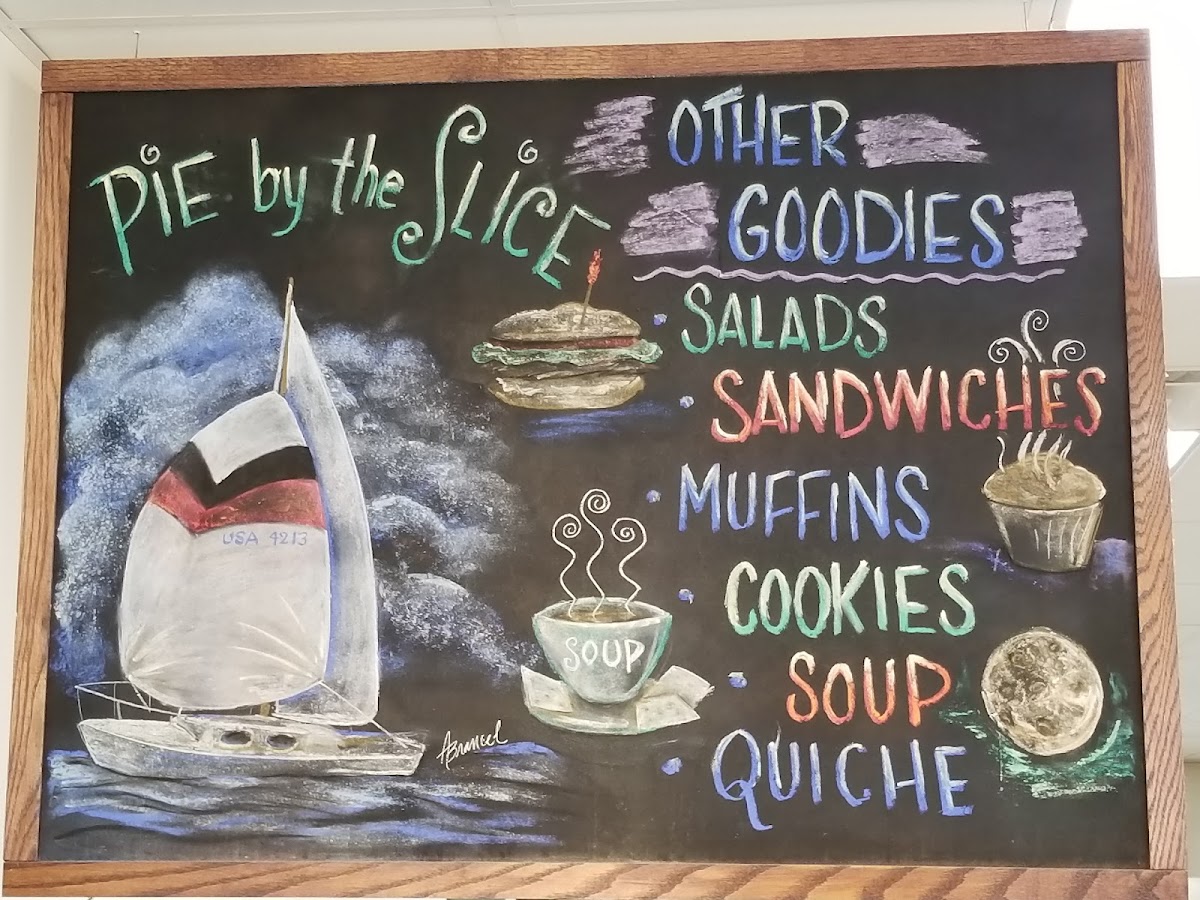 PiE by the SLiCE
OTHER
GOODIES
• SALADS
• SANDWICHES
• MUFFINS
• COOKIES
• SOUP
• QUICHE
USA 4213
SOUP